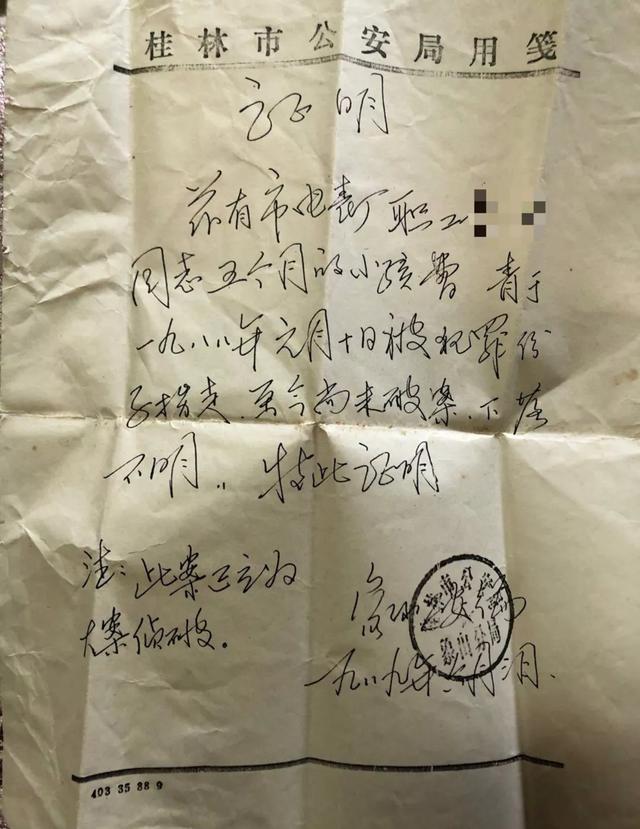 桂林市公安局用笺
证明
兹有市电表厂职工
同志五个月的小孩曾 青于
一九八八年元月十日被犯罪份
子拐走.至今尚未破案.下落
不明.,特此证明
注:此案已立为
大案侦破.
象山公安分局
一九八九年 月 日.
403 35 88 9